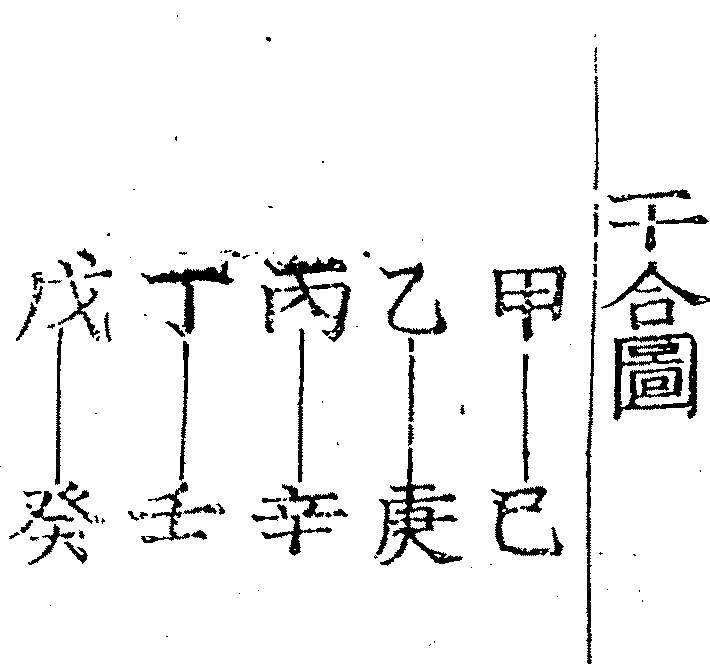 干合圖
甲己
乙庚
丙辛
丁壬
戊癸